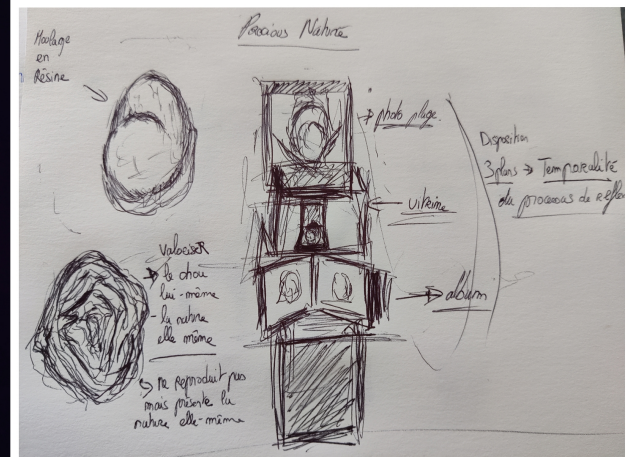 Precious Nature
Moulage
en
Résine
photo plage.
vitrine
album
Disposition
3 plans → Temporalité
du processus de réflex
Valoriser
le chou
lui-même
la nature
elle même
↳ ne reproduit pas
mais présente la
nature elle-même